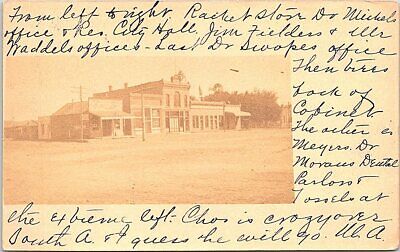 From left to right Racket Store Dr Michels
office & res. City Hall, Jim Fielders & Mr
Waddels offices - Last Dr Swopes office
Then trees
back of
Cabinet
The other is
Meyers. Dr
Morans Dental
Parlors &
Tossels at
the extreme left. Chas is crazy over
South A. & I guess he will go. U.A.